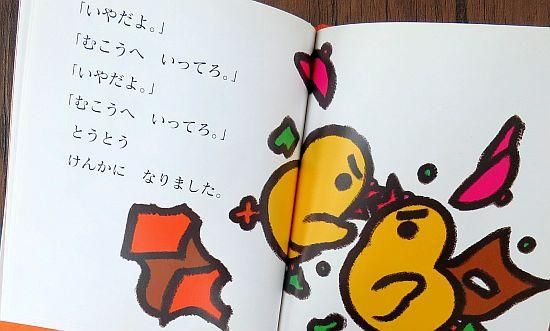 「いやだよ。」
「むこうへ　いってろ。」
「いやだよ。」
「むこうへ　いってろ。」
とうとう
けんかに　なりました。